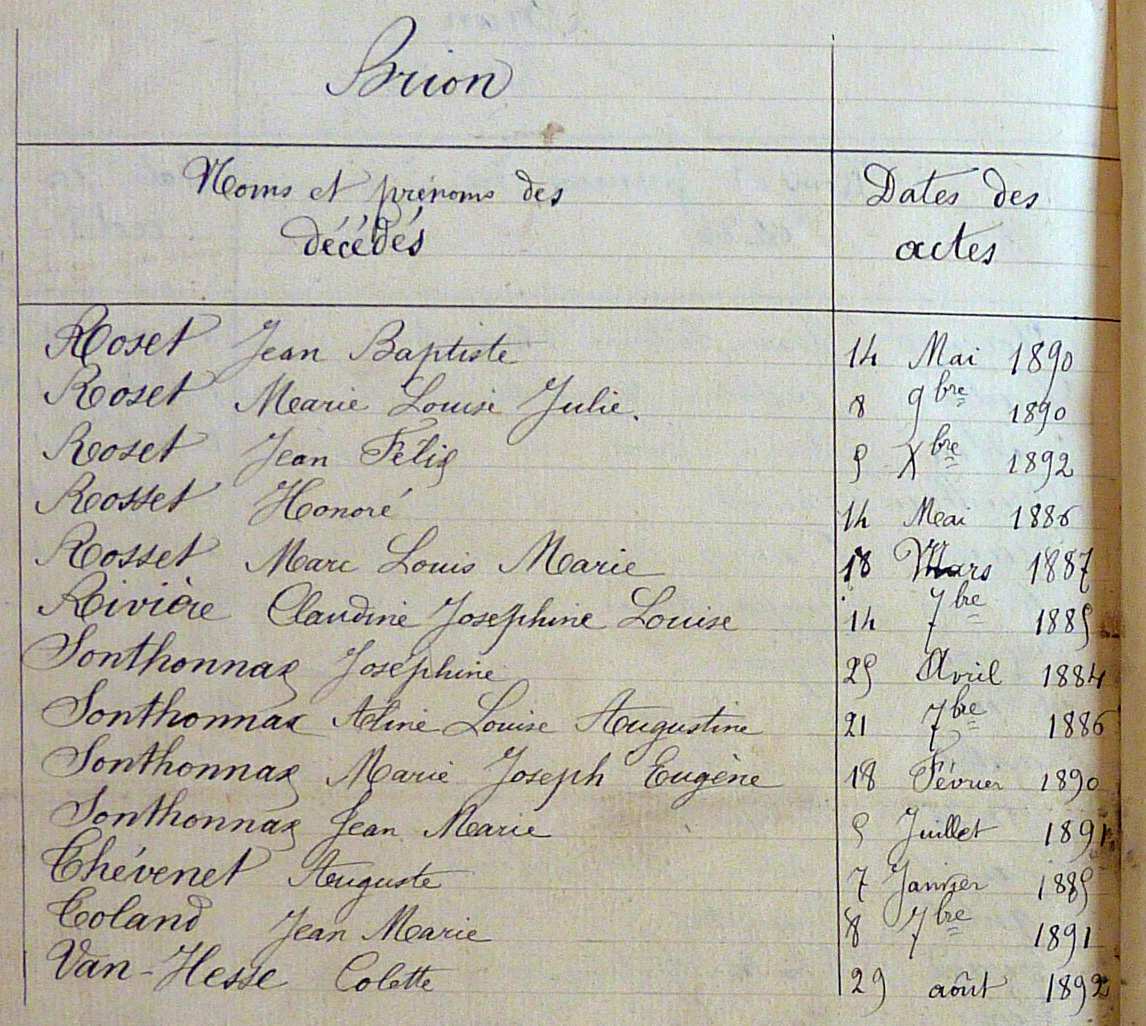 Brion
Noms et prénoms des
décédés
Dates des
actes
Roset Jean Baptiste 14 Mai 1890
Roset Marie Louise Julie. 8 9bre 1890
Roset Jean Félix 5 Xbre 1892
Rosset Honoré 14 Mai 1886
Rosset Marc Louis Marie 18 Mars 1887
Rivière Claudine Josephine Louise 14 7bre 1885
Sonthonnax Josephine 25 Avril 1884
Sonthonnax Aline Louise Augustine 21 7bre 1886
Sonthonnax Marie Joseph Eugène 18 Février 1890
Sonthonnax Jean Marie 5 Juillet 1891
Thévenet Auguste 7 Janvier 1885
Toland Jean Marie 8 7bre 1891
Van-Hesse Colette 29 août 1892